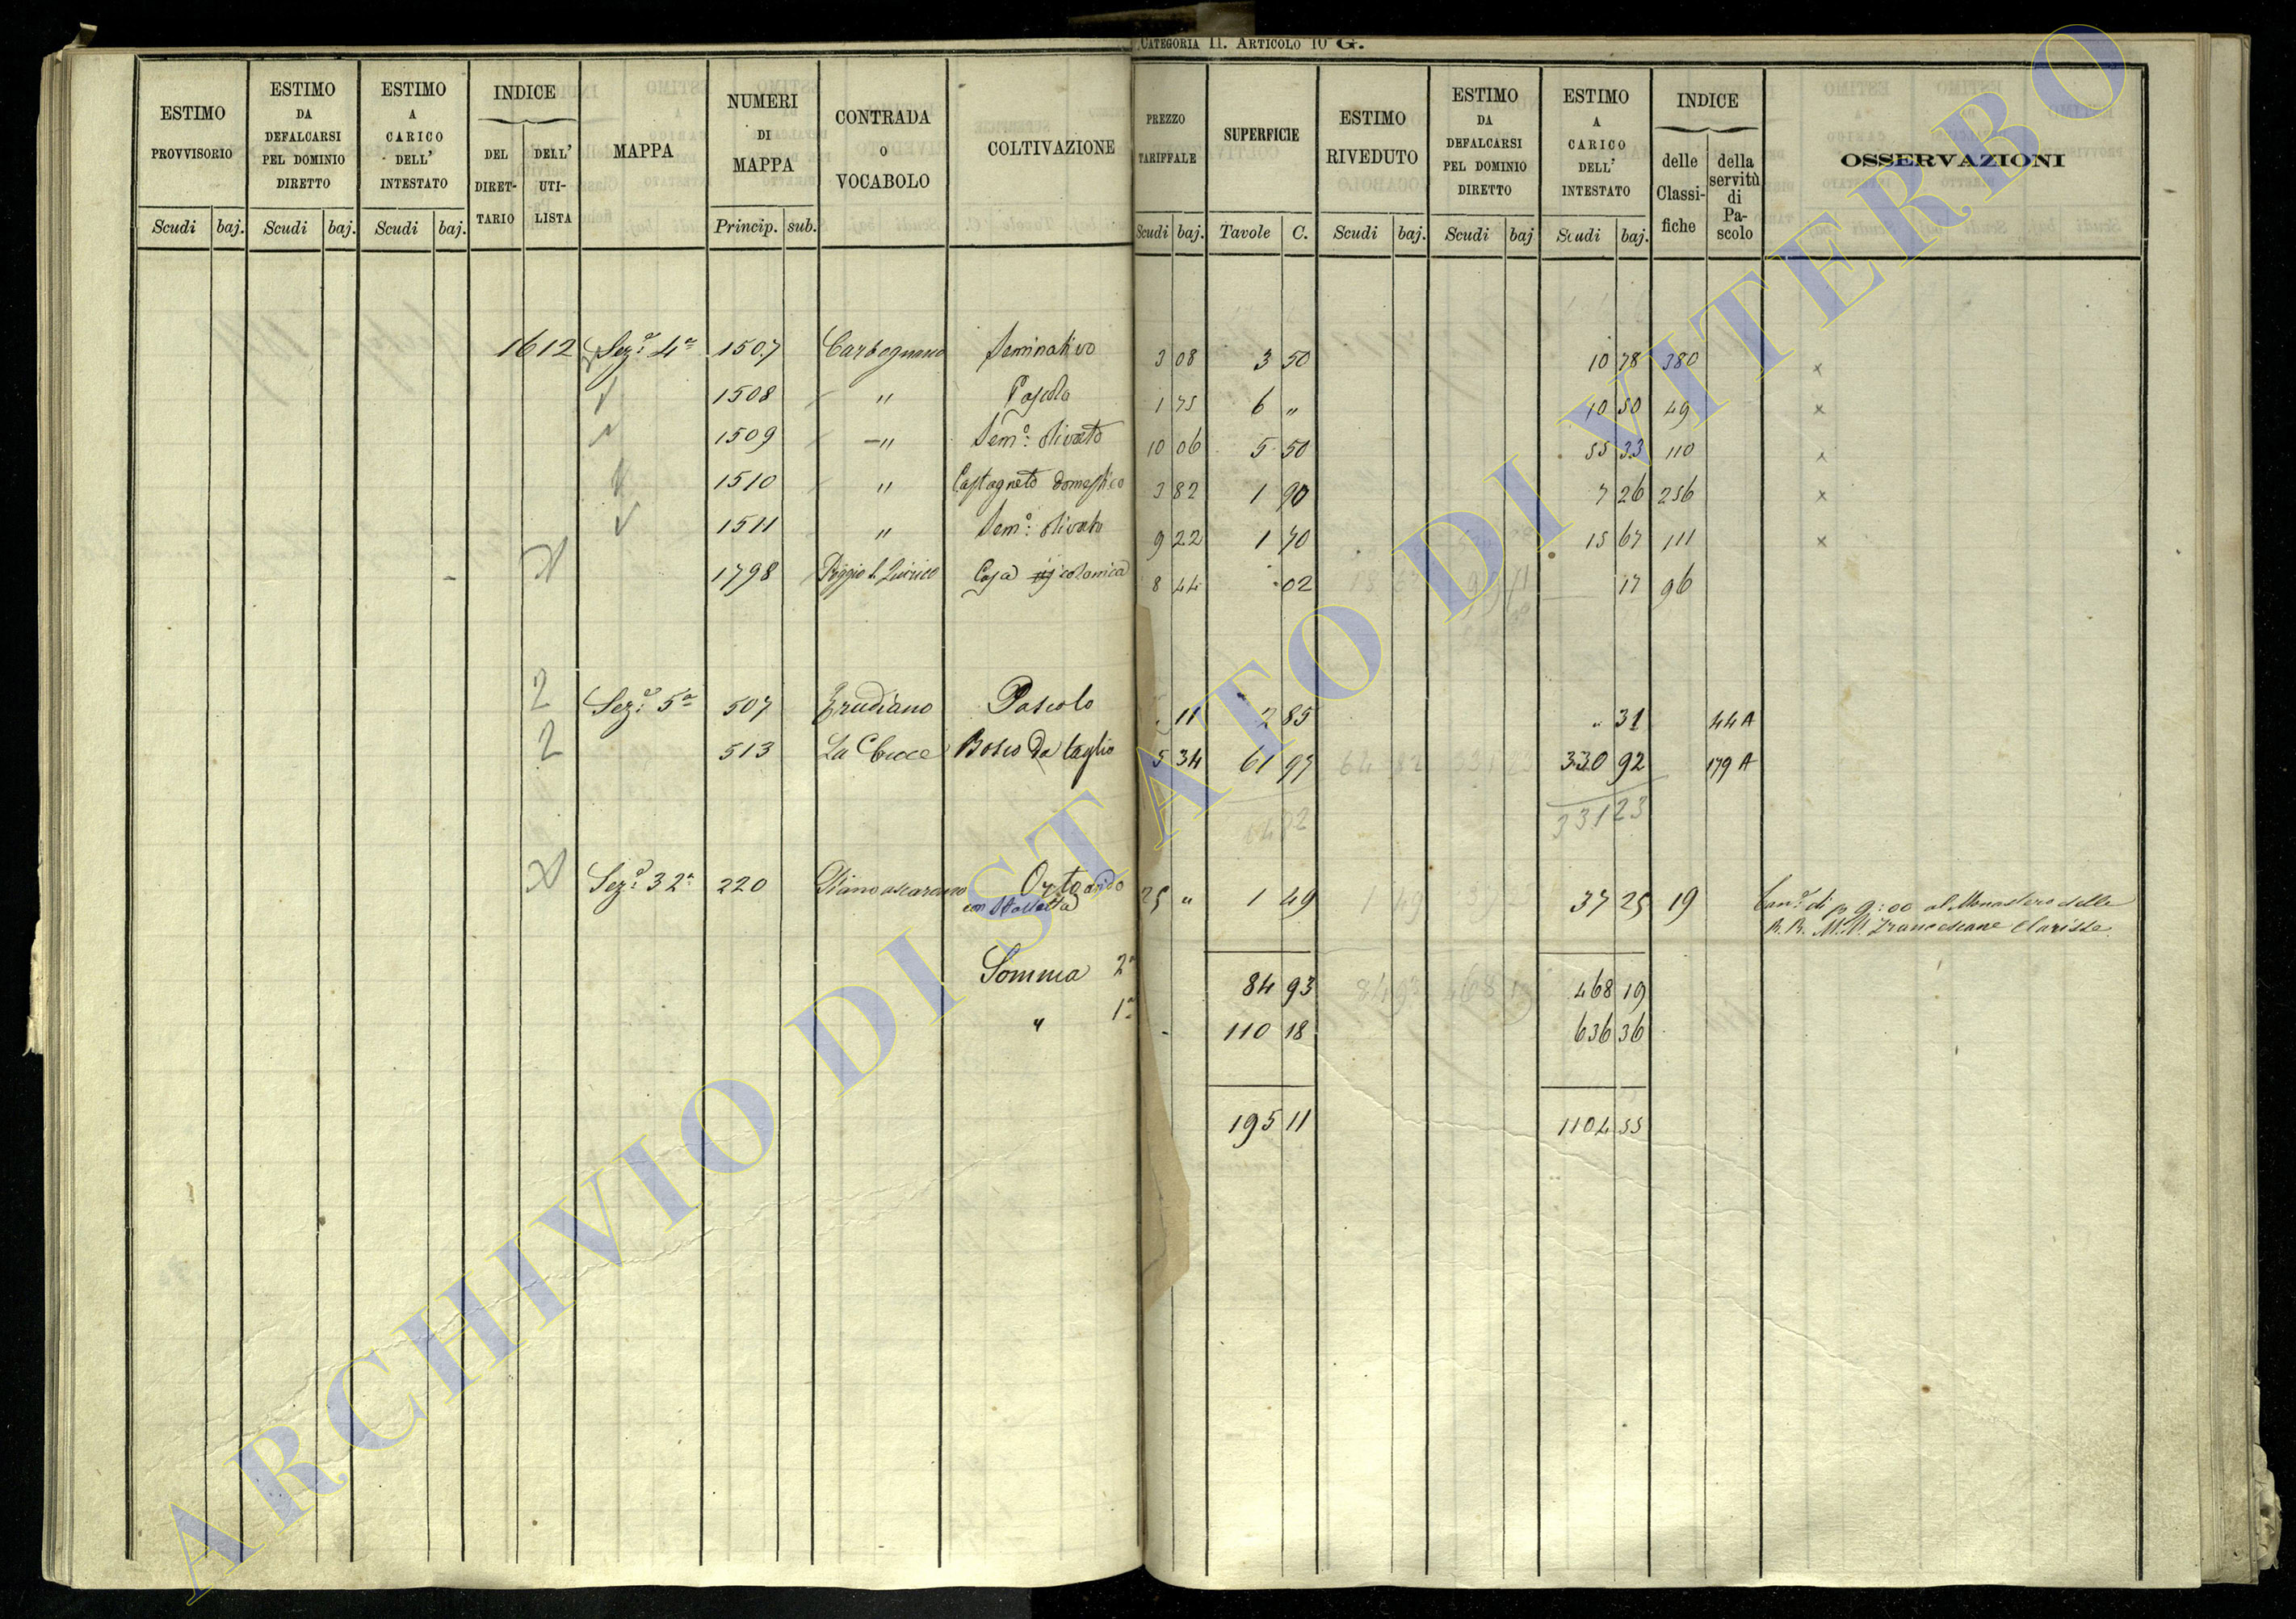 CATEGORIA II. ARTICOLO 10 G.
ESTIMO PROVVISORIO | ESTIMO DA DEFALCARSI PEL DOMINIO DIRETTO | ESTIMO A CARICO DELL' INTESTATO | INDICE DEL DIRETTARIO | DELL' UTILISTA | MAPPA | NUMERI DI MAPPA | CONTRADA O VOCABOLO | COLTIVAZIONE | PREZZO TARIFFALE | SUPERFICIE | ESTIMO RIVEDUTO | ESTIMO DA DEFALCARSI PEL DOMINIO DIRETTO | ESTIMO A CARICO DELL' INTESTATO | INDICE delle Classifiche | della servitù di Pascolo | OSSERVAZIONI
Scudi baj. | Scudi baj. | Scudi baj. | Princip. sub. | Scudi baj. | Tavole C. | Scudi baj. | Scudi baj | Scudi baj.
1612 Sez.e 4a 1507 Carbognano Seminativo 3 08 3 50 10 78 380 x
1508 " Pascolo 1 75 6 " 10 50 49 x
1509 " Sem.o olivato 10 06 5 50 55 33 110 x
1510 " Castagneto domestico 3 82 1 90 7 26 256 x
1511 " Sem.o olivato 9 22 1 70 15 67 111 x
1798 Poggio S. Quirico Casa colonica 8 44 02 17 96
2 Sez.e 5a 507 Pascolo " 11 2 85 " 31 44 A
2 513 La Croce Bosco da taglio 5 34 61 97 330 92 179 A
64 82 331 23
Sez.e 32a 220 Piano ascarano Orto asido con stalletta 25 " 1 49 37 25 19 Can.e di 9:00 al Monastero delle
R.R. M.M. Francescane Clarisse.
Somma 2a 84 93 468 19
" 1a 110 18 636 36
195 11 1104 55
ARCHIVIO DI STATO DI VITERBO